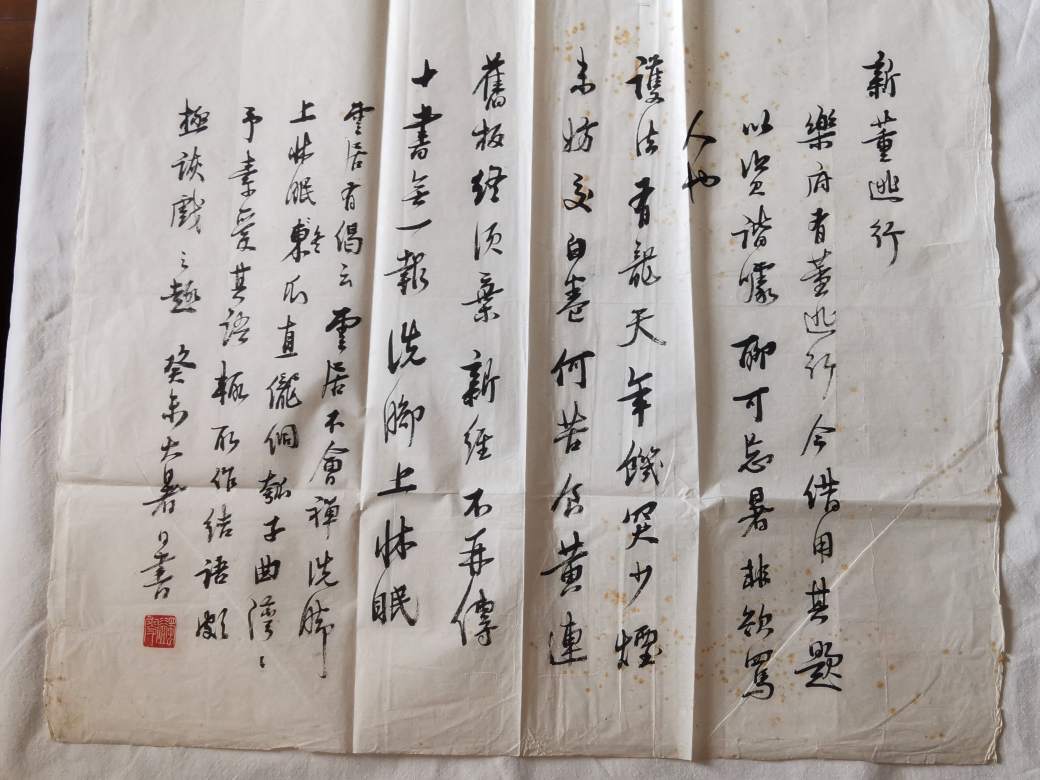 新董逃行
樂府有董逃行今借用其題
以資諧噱聊可忘暑非欲罵
人也
護法有龍天年饑突少煙
未妨交白卷何苦食黃連
舊板終須棄新經不再傳
十書無一報洗腳上牀眠
雲居有偈云雲居不會禪洗腳
上牀眠東瓜直儱侗瓠子曲彎〻
予素愛其語輒取作結語頗
極詼戲之趣 癸未大暑日書